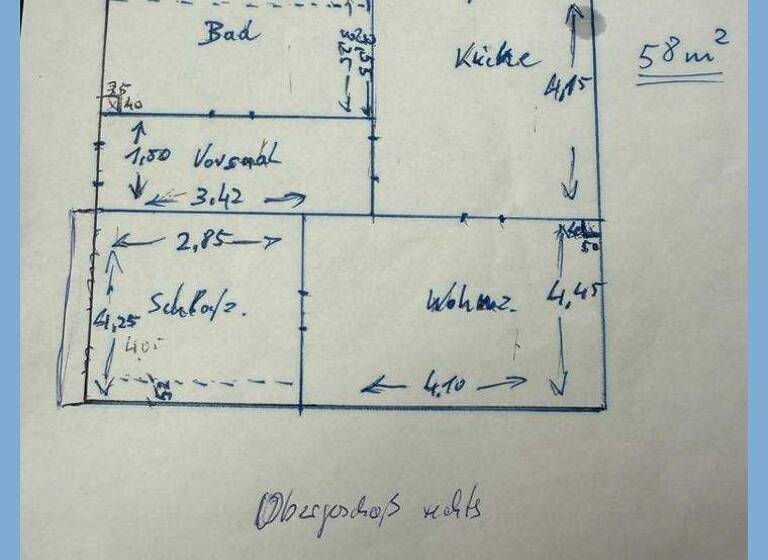 Bad
Küche
58m²
4,15
35
40
1,50 Vorsaal
3,42
2,85
50
Schlafz.
Wohnz.
4,45
4,25
4,05
52
4,10
Obergeschoß rechts